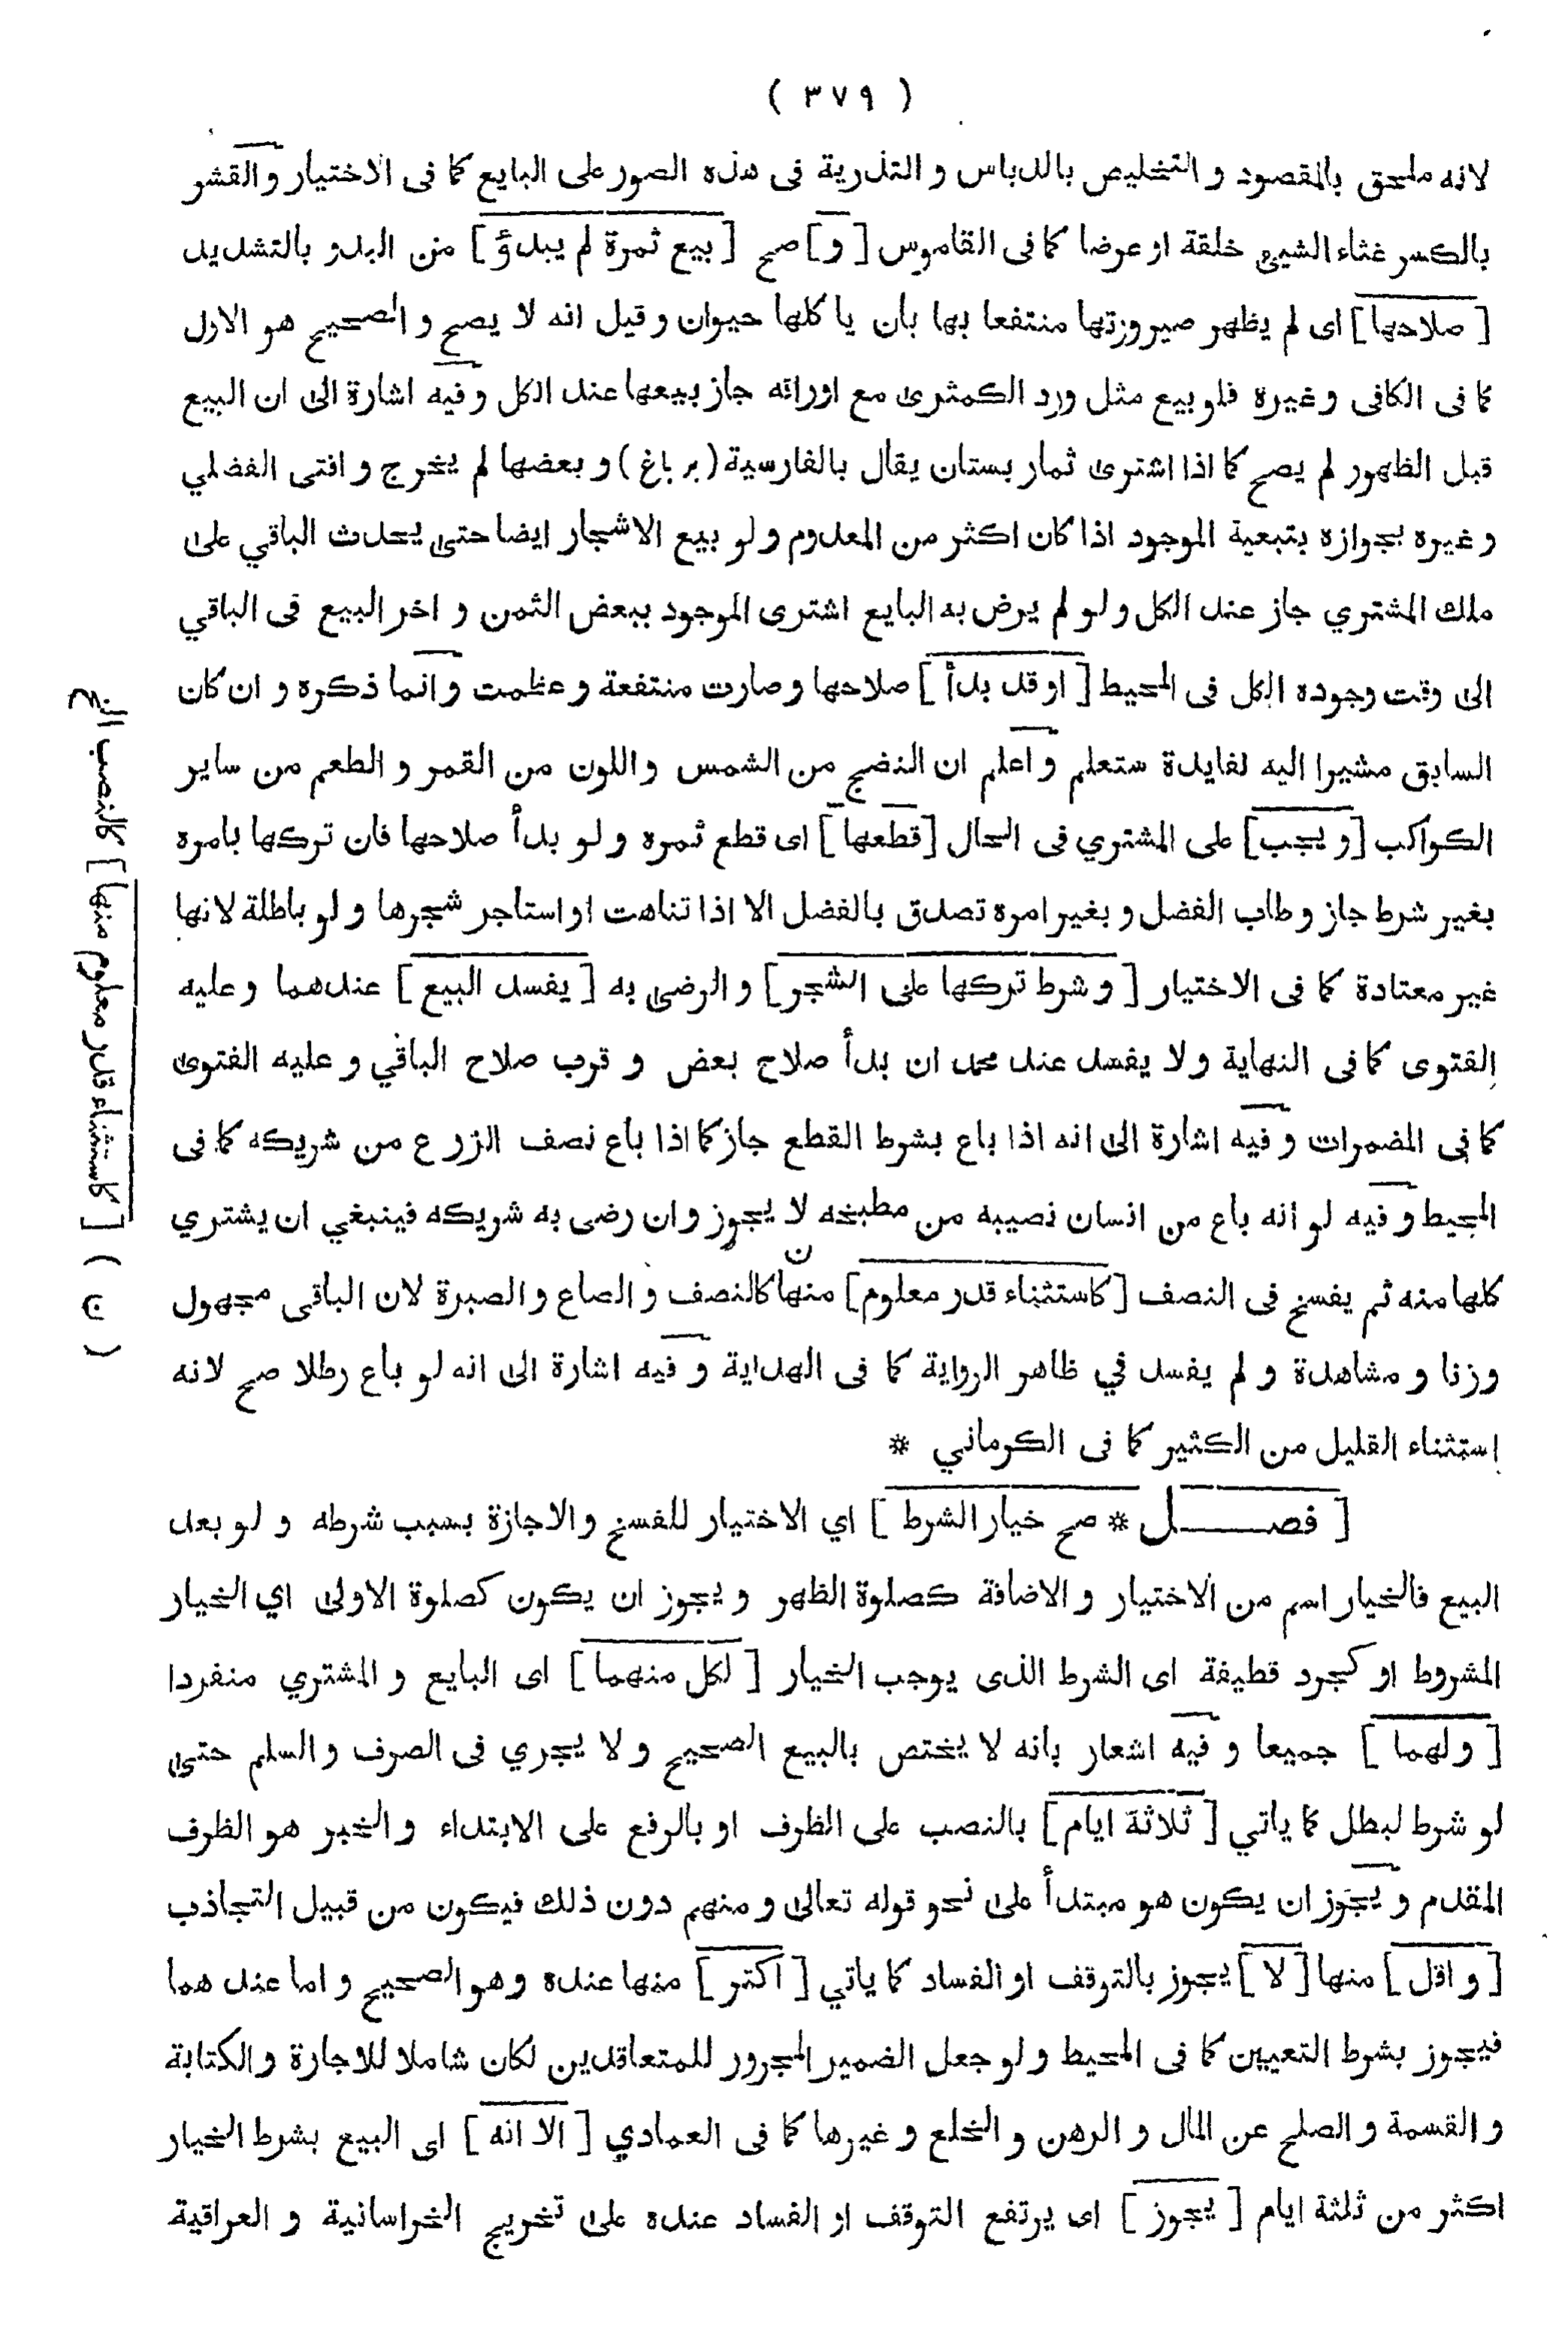 ( ٣٧٩ )
لانه ملحق بالمقصود و التخليص بالدباس و التذرية فى هذه الصور على البايع كما فى الاختيار و القشر
بالكسر غثاء الشيئ خلقة او عرضا كما فى القاموس [ و ] صح [ بيع ثمرة لم يبدؤ ] من البدو بالتشديد
[ صلاحها ] اى لم يظهر صيرورتها منتفعا بها بأن ياكلها حيوان و قيل انه لا يصح و الصحيح هو الاول
كما فى الكافى و غيره فلو بيع مثل ورد الكمثرى مع اوراقه جاز بيعها عند الكل و فيه اشارة الى ان البيع
قبل الظهور لم يصح كما اذا اشترى ثمار بستان يقال بالفارسية ( بر باغ ) و بعضها لم يخرج و افتى الفضلي
و غيره بجوازه بتبعية الموجود اذا كان اكثر من المعدوم و لو بيع الاشجار ايضا حتى يحدث الباقي على
ملك المشتري جاز عند الكل و لو لم يرض به البايع اشترى الموجود ببعض الثمن و اخر البيع فى الباقي
الى وقت وجوده الكل فى المحيط [ او قد بدأ ] صلاحها و صارت منتفعة و عظمت و انما ذكره و ان كان
السابق مشيرا اليه لفايدة ستعلم و اعلم ان النضج من الشمس و اللون من القمر و الطعم من ساير
الكواكب [ و يجب ] على المشتري فى الحال [ قطعها ] اى قطع ثمره و لو بدأ صلاحها فان تركها بامره
بغير شرط جاز و طاب الفضل و بغير امره تصدق بالفضل الا اذا تناهت او استاجر شجرها و لو باطلة لانها
غير معتادة كما فى الاختيار [ و شرط تركها على الشجر ] و الرضى به [ يفسد البيع ] عندهما و عليه
الفتوى كما فى النهاية و لا يفسد عند محمد ان بدأ صلاح بعض و قرب صلاح الباقي و عليه الفتوى
كما فى المضمرات و فيه اشارة الى انه اذا باع بشرط القطع جاز كما اذا باع نصف الزرع من شريكه كما فى
المحيط و فيه لو انه باع من انسان نصيبه من مطبخه لا يجوز و ان رضى به شريكه فينبغي ان يشتري
كلها منه ثم يفسخ فى النصف [ كاستثناء قدر معلوم ] منها ن كالنصف و الصاع و الصبرة لان الباقى مجهول
وزنا و مشاهدة و لم يفسد في ظاهر الرواية كما فى الهداية و فيه اشارة الى انه لو باع رطلا صح لانه
استثناء القليل من الكثير كما فى الكرماني *
[ فصـــل * صح خيار الشرط ] اي الاختيار للفسخ و الاجازة بسبب شرطه و لو بعد
البيع فالخيار اسم من الاختيار و الاضافة كصلوة الظهر و يجوز ان يكون كصلوة الاولى اي الخيار
المشروط او كجرد قطيفة اى الشرط الذى يوجب الخيار [ لكل منهما ] اى البايع و المشتري منفردا
[ و لهما ] جميعا و فيه اشعار بانه لا يختص بالبيع الصحيح و لا يجري فى الصرف و السلم حتى
لو شرط لبطل كما ياتي [ ثلاثة ايام ] بالنصب على الظرف او بالرفع على الابتداء و الخبر هو الظرف
المقدم و يجوز ان يكون هو مبتدأ على نحو قوله تعالى و منهم دون ذلك فيكون من قبيل التجاذب
[ و اقل ] منها [ لا ] يجوز بالتوقف او الفساد كما ياتي [ اكثر ] منها عنده و هو الصحيح و اما عند هما
فيجوز بشرط التعيين كما فى المحيط و لو جعل الضمير المجرور للمتعاقدين لكان شاملا للاجارة و الكتابة
و القسمة و الصلح عن المال و الرهن و الخلع و غيرها كما فى العمادي [ الا انه ] اى البيع بشرط الخيار
اكثر من ثلثة ايام [ يجوز ] اى يرتفع التوقف او الفساد عنده على تخريج الخراسانية و العراقية
( ن ) [ كاستثناء قدر معلوم منها ] كالنصب الخ